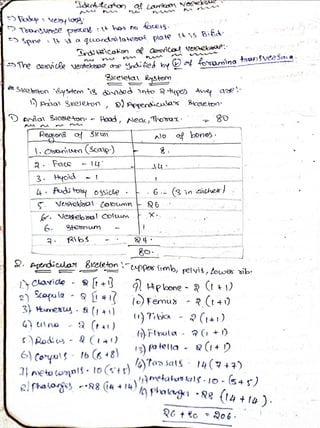 Identification of Lumbar Vertebrae
⇒ Body : Very large
⇒ Transverse process : it has no facets.
⇒ Spine : It is a quandrilateral plate It is Bifid.
Indification of cervical vertebrae:-
⇒ The cervicle vertebrae are indified by of foramina transversing.
Skeletal System
* Skeleton system is divided into 2 types they are:-
1) Axial Skeleton, 2) Appendicular Skeleton.
1) Axial Skeleton - Head, Neck, Thorax. = 80
Regions of Skull No of bones.
1. Cranium (Scalp) 8.
2. Face - 14 14.
3. Hyoid - 1 1
4. Auditory ossicle 6 - (3 in each ear)
5. Vertebral Coloumn - 26
6. Vertebral Colum x.
6. Sternum 1
7. Ribs 24.
80.
2. Apendicular Skeleton:- upper limb, pelvis, Lower rib.
1) Clavicle - 2 [1+1]
2) Scapula - 2 [1+1]
3) Humerus - 2 (1+1)
4) Ulna - 2 (1+1)
5) Radius - 2 (1+1)
6) Carpals 16 (8+8)
7) metacarpals - 10 (5+5)
8) Phalanges - 28 (14+14)
9) Hip bone - 2 (1+1)
10) Femur - 2 (1+1)
11) Tibia - 2 (1+1)
12) Fibula - 2 (1+1)
13) patella - 2 (1+1)
14) Tarsals 14 (7+7)
15) metatarsals - 10 - (5+5)
16) phalanges - 28 (14+14).
126 + 80 = 206.